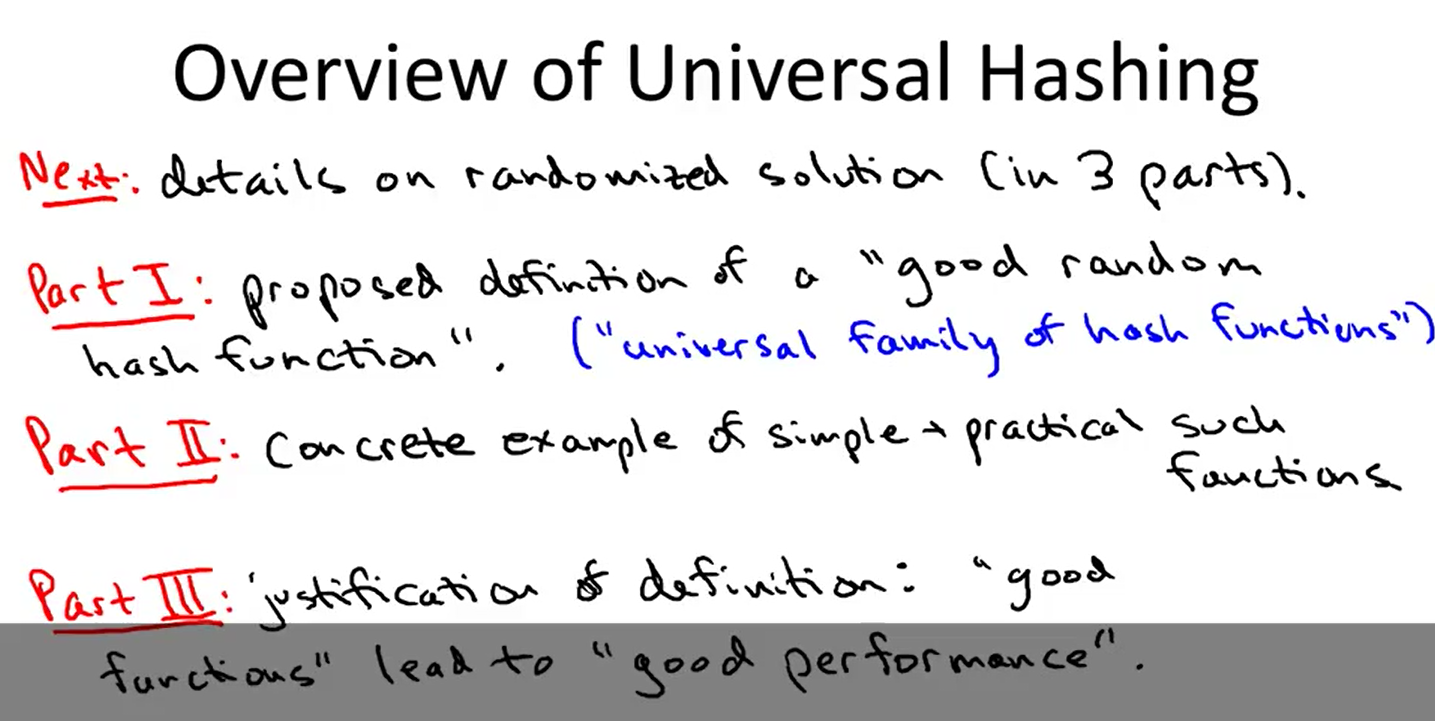 Overview of Universal Hashing
Next: details on randomized solution (in 3 parts).
Part I: proposed definition of a "good random
hash function". ("universal family of hash functions")
Part II: Concrete example of simple + practical such
functions
Part III: justification of definition: "good
functions" lead to "good performance".